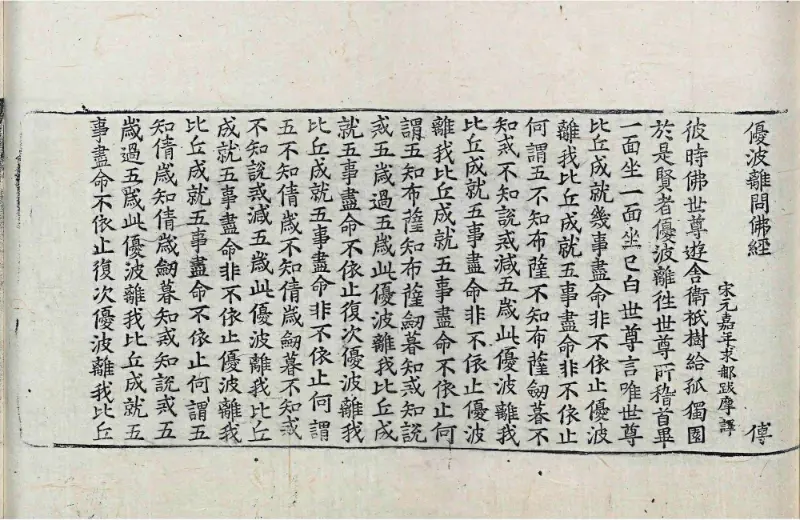 優波離問佛經 傳
宋元嘉年求那跋摩譯
彼時佛世尊遊舍衛祇樹給孤獨園
於是賢者優波離往世尊所稽首畢
一面坐一面坐已白世尊言唯世尊
比丘成就幾事盡命非不依止優波
離我比丘成就五事盡命非不依止
何謂五不知布薩不知布薩劒暮不
知戒不知說戒減五歲此優波離我
比丘成就五事盡命非不依止優波
離我比丘成就五事盡命不依止何
謂五知布薩知布薩劒暮知戒知說
戒五歲過五歲此優波離我比丘成
就五事盡命不依止復次優波離我
比丘成就五事盡命非不依止何謂
五不知倩歲不知倩歲劒暮不知戒
不知說戒減五歲此優波離我比丘
成就五事盡命非不依止優波離我
比丘成就五事盡命不依止何謂五
知倩歲知倩歲劒暮知戒知說戒五
歲過五歲此優波離我比丘成就五
事盡命不依止復次優波離我比丘